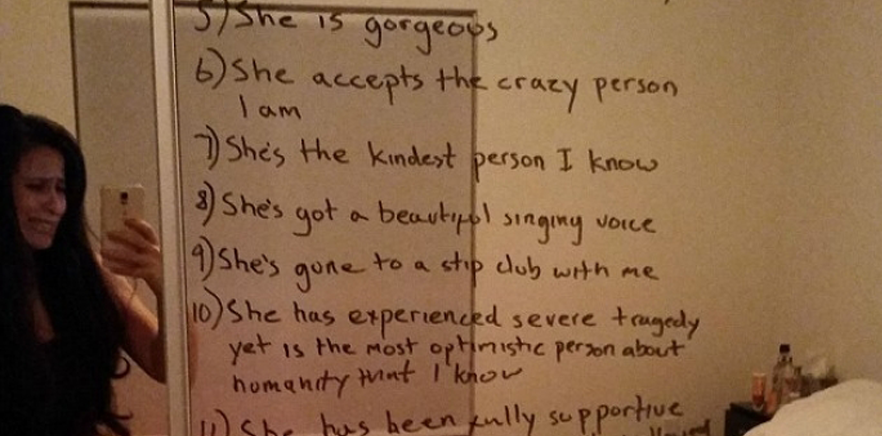 5) She is gorgeous
6) She accepts the crazy person
I am
7) She's the kindest person I know
8) She's got a beautiful singing voice
9) She's gone to a stip club with me
10) She has experienced severe tragedy
yet is the most optimistic person about
humanity that I know
11) She has been fully supportive